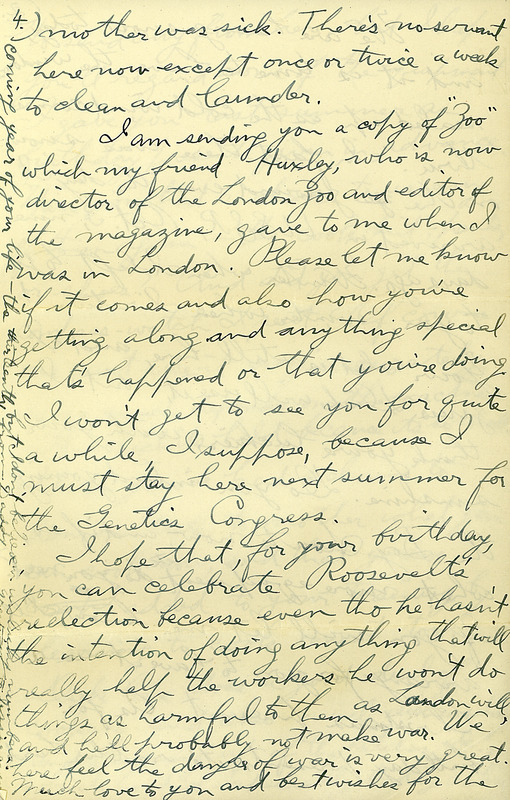 4.) mother was sick. There's no servant
here now except once or twice a week
to clean and launder.
I am sending you a copy of "Zoo"
which my friend Huxley, who is now
director of the London Zoo and editor of
the magazine, gave to me when I
was in London. Please let me know
if it comes and also how you're
getting along and anything special
that's happened or that you're doing
I won't get to see you for quite
a while, I suppose, because I
must stay here next summer for
the Genetics Congress.
I hope that, for your birthday,
you can celebrate Roosevelt's
relection because even tho he hasn't
the intention of doing anything that will
really help the workers he won't do
things as harmful to them as Landon will,
and he'll probably not make war. We
here feel the danger of war is very great.
Much love to you and best wishes for the
coming year of your life - the thirteenth,